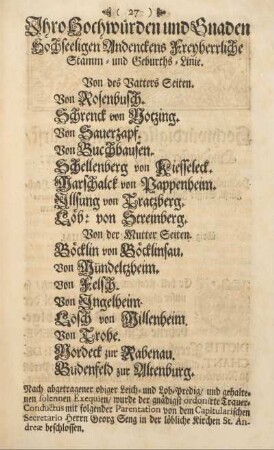 ( 27 )
Ihro Hochwürden und Gnaden
Hochseeligen Andenckens Freyherrliche
Stamm- und Geburths-Linie.
Von des Vatters Seiten.
Von Rosenbusch.
Schrenck von Notzing.
Von Sauerzapf.
Von Buchhausen.
Schellenberg von Kiesseleck.
Marschalck von Pappenheim.
Ilsung von Tratzberg.
Löb: von Stereinberg.
Von der Mutter Seiten.
Böcklin von Böcklinsau.
Von Mündeltzheim.
Von Felsch.
Von Ingelheim.
Lösch von Millenheim.
Von Trohe.
Nordeck zur Rabenau.
Budenfeld zur Altenburg.
Nach abgetragener obiger Leich- und Lob-Predig/ und gehalte-
nen solennen Exequien/ wurde der gnädigst ordonirte Trauer-
Conductus mit folgender Parentation von dem Capitularischen
Secretario Herrn Georg Seng in der löbliche Kirchen St. An-
dreæ beschlossen.